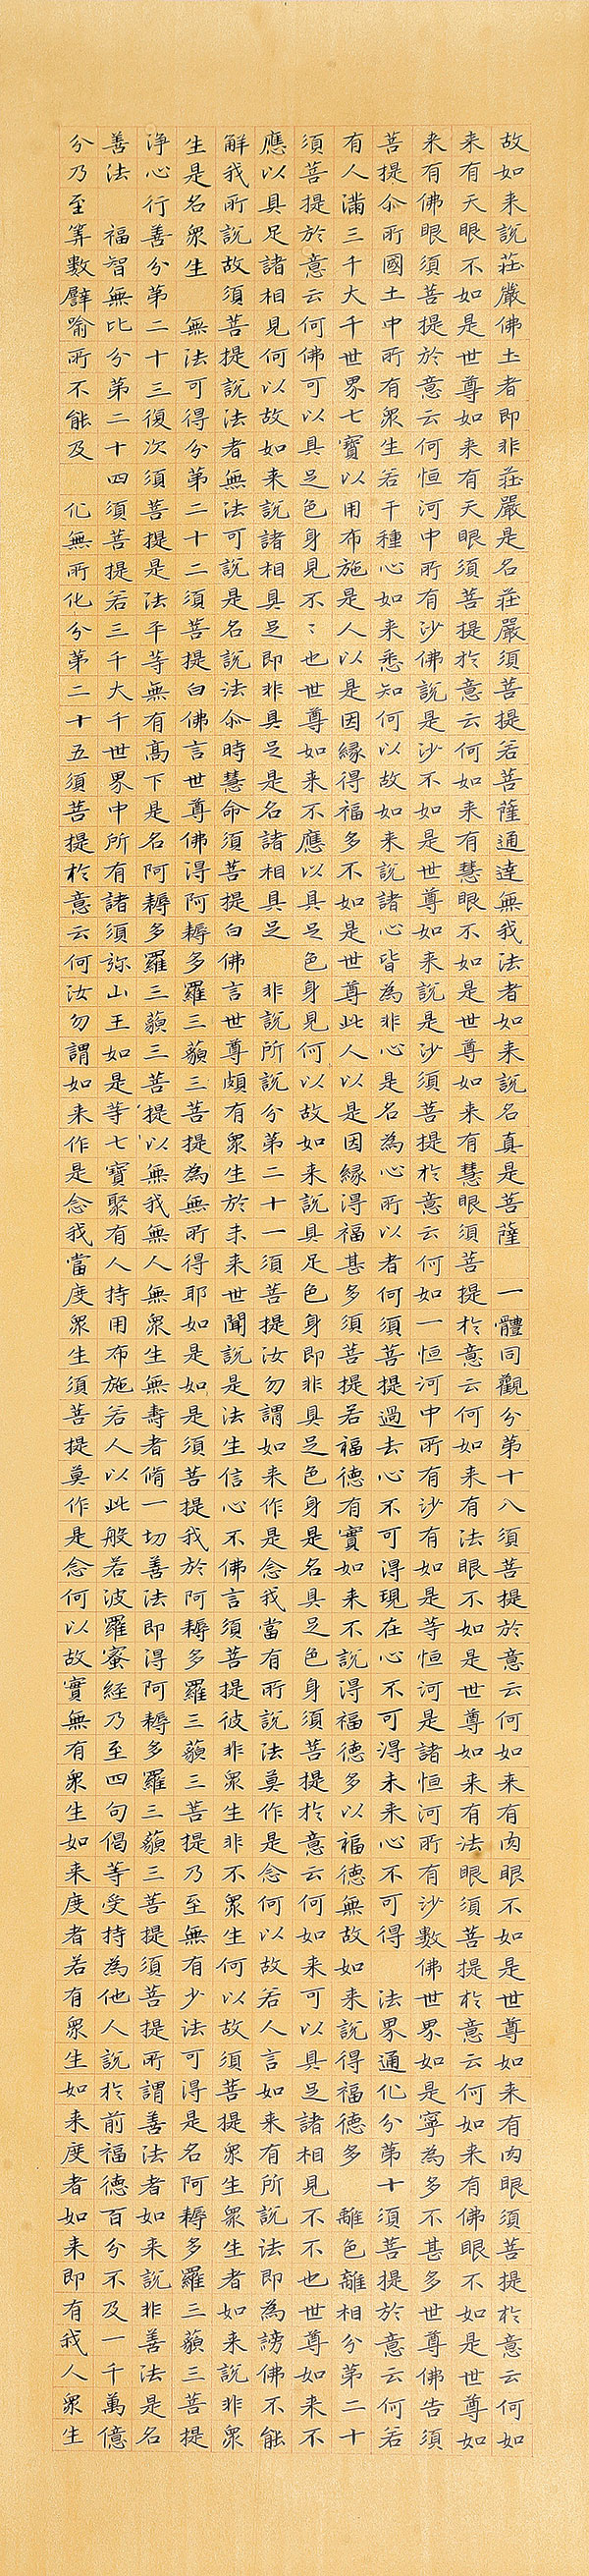 故如来說莊嚴佛土者即非莊嚴是名莊嚴須菩提若菩薩通達無我法者如来說名真是菩薩　一體同觀分第十八須菩提於意云何如来有肉眼不如是世尊如来有肉眼須菩提於意云何如
来有天眼不如是世尊如来有天眼須菩提於意云何如来有慧眼不如是世尊如来有慧眼須菩提於意云何如来有法眼不如是世尊如来有法眼須菩提於意云何如来有佛眼不如是世尊如
来有佛眼須菩提於意云何恒河中所有沙佛說是沙不如是世尊如来說是沙須菩提於意云何如一恒河中所有沙有如是等恒河是諸恒河所有沙數佛世界如是寧為多不甚多世尊佛告須
菩提尒所國土中所有眾生若干種心如来悉知何以故如来說諸心皆為非心是名為心所以者何須菩提過去心不可得現在心不可得未来心不可得　法界通化分第十須菩提於意云何若
有人滿三千大千世界七寶以用布施是人以是因緣得福多不如是世尊此人以是因緣得福甚多須菩提若福德有實如来不說得福德多以福德無故如来說得福德多　離色離相分第二十
須菩提於意云何佛可以具足色身見不〻也世尊如来不應以具足色身見何以故如来說具足色身即非具足色身是名具足色身須菩提於意云何如来可以具足諸相見不不也世尊如来不
應以具足諸相見何以故如来說諸相具足即非具足是名諸相具足　非說所說分第二十一須菩提汝勿謂如来作是念我當有所說法莫作是念何以故若人言如来有所說法即為謗佛不能
解我所說故須菩提說法者無法可說是名說法尒時慧命須菩提白佛言世尊頗有眾生於未来世聞說是法生信心不佛言須菩提彼非眾生非不眾生何以故須菩提眾生眾生者如来說非眾
生是名眾生　無法可得分第二十二須菩提白佛言世尊佛得阿耨多羅三藐三菩提為無所得耶如是如是須菩提我於阿耨多羅三藐三菩提乃至無有少法可得是名阿耨多羅三藐三菩提
淨心行善分第二十三復次須菩提是法平等無有高下是名阿耨多羅三藐三菩提以無我無人無眾生無壽者脩一切善法即得阿耨多羅三藐三菩提須菩提所謂善法者如来說非善法是名
善法　福智無比分第二十四須菩提若三千大千世界中所有諸須弥山王如是等七寶聚有人持用布施若人以此般若波羅蜜經乃至四句偈等受持為他人說於前福德百分不及一千萬億
分乃至算數譬喻所不能及　化無所化分第二十五須菩提於意云何汝勿謂如来作是念我當度眾生須菩提莫作是念何以故實無有眾生如来度者若有眾生如来度者如来即有我人眾生